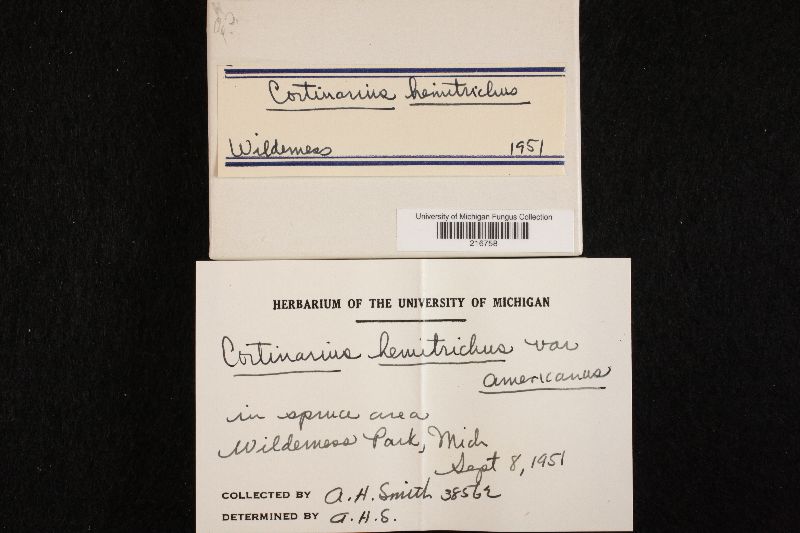 Cortinarius hemitrichus
Wilderness 1951
University of Michigan Fungus Collection
216758
HERBARIUM OF THE UNIVERSITY OF MICHIGAN
Cortinarius hemitrichus var
americanus
in spruce area
Wilderness Park, Mich
Sept 8, 1951
COLLECTED BY A.H. Smith 38562
DETERMINED BY A.H.S.